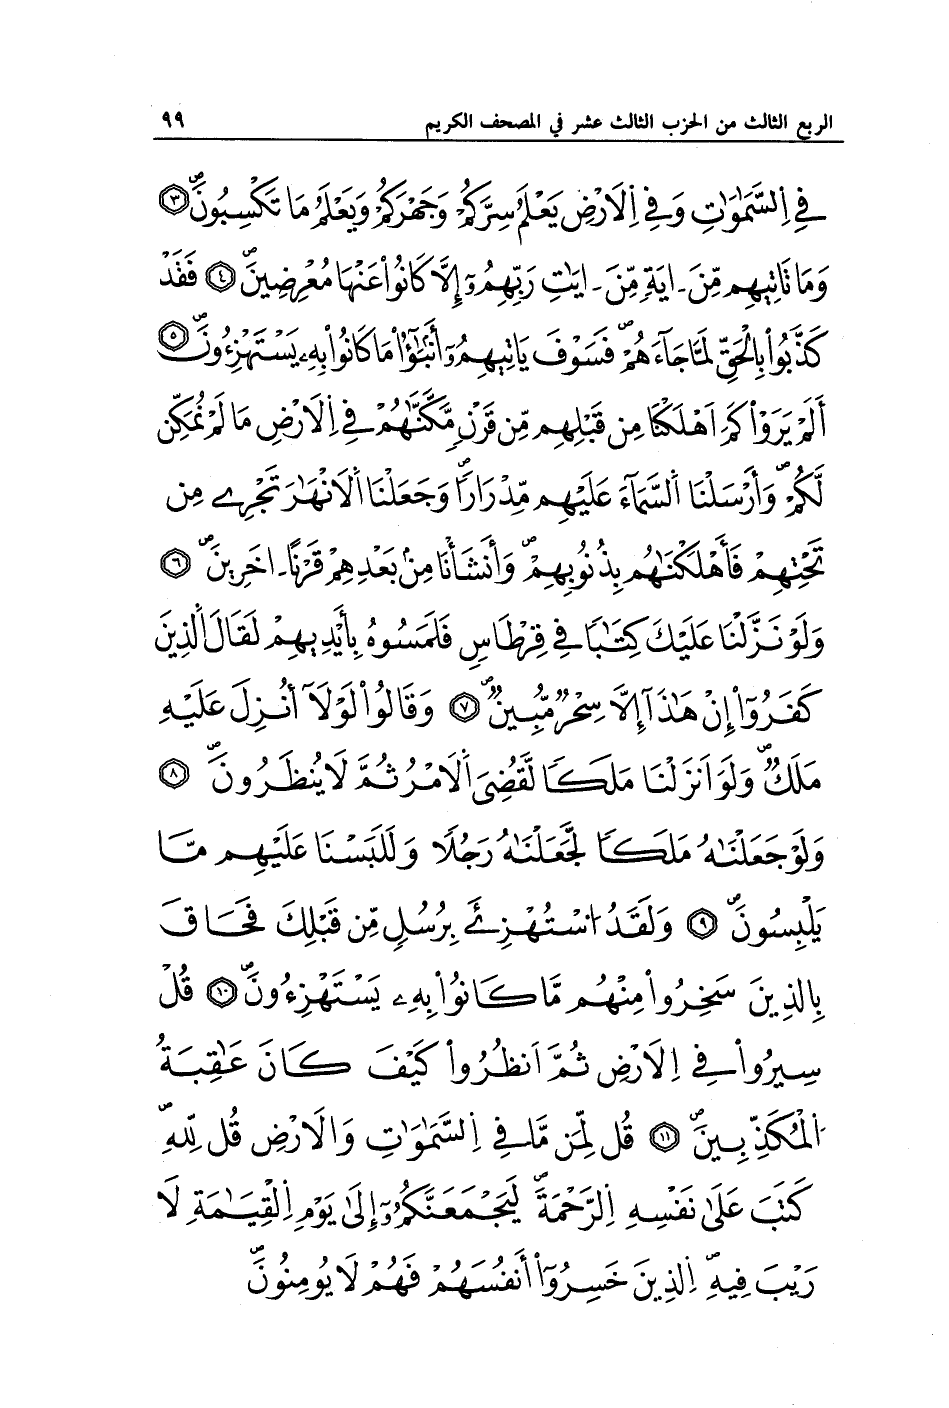 الربع الثالث من الحزب الثالث عشر في المصحف الكريم ٩٩
فِي اِ۬لسَّمَٰوَٰتِ وَفِي اِ۬لَارْضِ يَعْلَمُ سِرَّكُمْ وَجَهْرَكُمْ وَيَعْلَمُ مَا تَكْسِبُونَۖ ٣
وَمَا تَاتِيهِم مِّنَ ـ ايَةٖ مِّنَ ـ ايَٰتِ رَبِّهِمُۥٓ إِلَّا كَانُواْ عَنْهَا مُعْرِضِينَۖ ٤ فَقَدْ
كَذَّبُواْ بِالْحَقِّ لَمَّا جَآءَهُمْۖ فَسَوْفَ يَاتِيهِمُۥٓ أَنۢبَٰٓؤُاْ مَا كَانُواْ بِهِۦ يَسْتَهْزِءُونَۖ ٥
أَلَمْ يَرَوْاْ كَمَ اَهْلَكْنَا مِن قَبْلِهِم مِّن قَرْنٖ مَّكَّنَّٰهُمْ فِي اِ۬لَارْضِ مَا لَمْ نُمَكِّن
لَّكُمْۖ وَأَرْسَلْنَا اَ۬لسَّمَآءَ عَلَيْهِم مِّدْرَاراٗۖ وَجَعَلْنَا اَ۬لَانْهَٰرَ تَجْرِے مِن
تَحْتِهِمْ فَأَهْلَكْنَٰهُم بِذُنُوبِهِمْۖ وَأَنشَأْنَا مِنۢ بَعْدِهِمْ قَرْناً ـ اخَرِينَۖ ٦
وَلَوْ نَزَّلْنَا عَلَيْكَ كِتَٰباٗ فِي قِرْطَاسٖ فَلَمَسُوهُ بِأَيْدِيهِمْ لَقَالَ اَ۬لذِينَ
كَفَرُوٓاْ إِنْ هَٰذَآ إِلَّا سِحْرٞ مُّبِينٞۖ ٧ وَقَالُواْ لَوْلَآ أُنزِلَ عَلَيْهِ
مَلَكٞۖ وَلَوَ اَنزَلْنَا مَلَكاٗ لَّقُضِيَ اَ۬لَامْرُ ثُمَّ لَا يُنظَرُونَۖ ٨
وَلَوْ جَعَلْنَٰهُ مَلَكاٗ لَّجَعَلْنَٰهُ رَجُلاٗ وَلَلَبَسْنَا عَلَيْهِم مَّا
يَلْبِسُونَۖ ٩ وَلَقَدُ اُ۟سْتُهْزِئَ بِرُسُلٖ مِّن قَبْلِكَ فَحَاقَ
بِالذِينَ سَخِرُواْ مِنْهُم مَّا كَانُواْ بِهِۦ يَسْتَهْزِءُونَۖ ١٠ قُلْ
سِيرُواْ فِي اِ۬لَارْضِ ثُمَّ اَ۟نظُرُواْ كَيْفَ كَانَ عَٰقِبَةُ
اُ۬لْمُكَذِّبِينَۖ ١١ قُل لِّمَن مَّا فِي اِ۬لسَّمَٰوَٰتِ وَالَارْضِ قُل لِّلهِۖ
كَتَبَ عَلَىٰ نَفْسِهِ اِ۬لرَّحْمَةَۖ لَيَجْمَعَنَّكُمُۥٓ إِلَىٰ يَوْمِ اِ۬لْقِيَٰمَةِ لَا
رَيْبَ فِيهِۖ اِ۬لذِينَ خَسِرُوٓاْ أَنفُسَهُمْ فَهُمْ لَا يُومِنُونَۖ